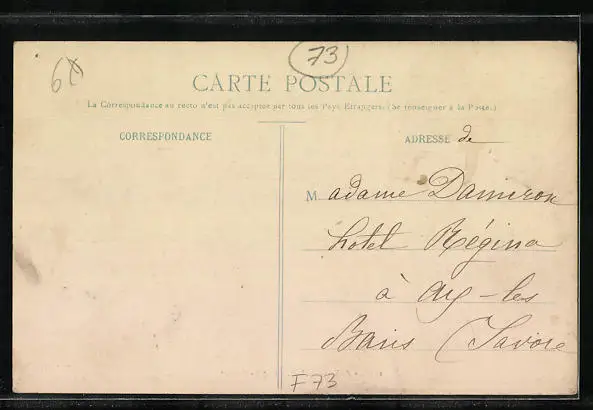 73
CARTE POSTALE
La Correspondance au recto n'est pas acceptée par tous les Pays Etrangers. (Se renseigner à la Poste.)
CORRESPONDANCE
ADRESSE de
Madame Damiron
hotel Régina
à Aix-les
Bains (Savoie
F73